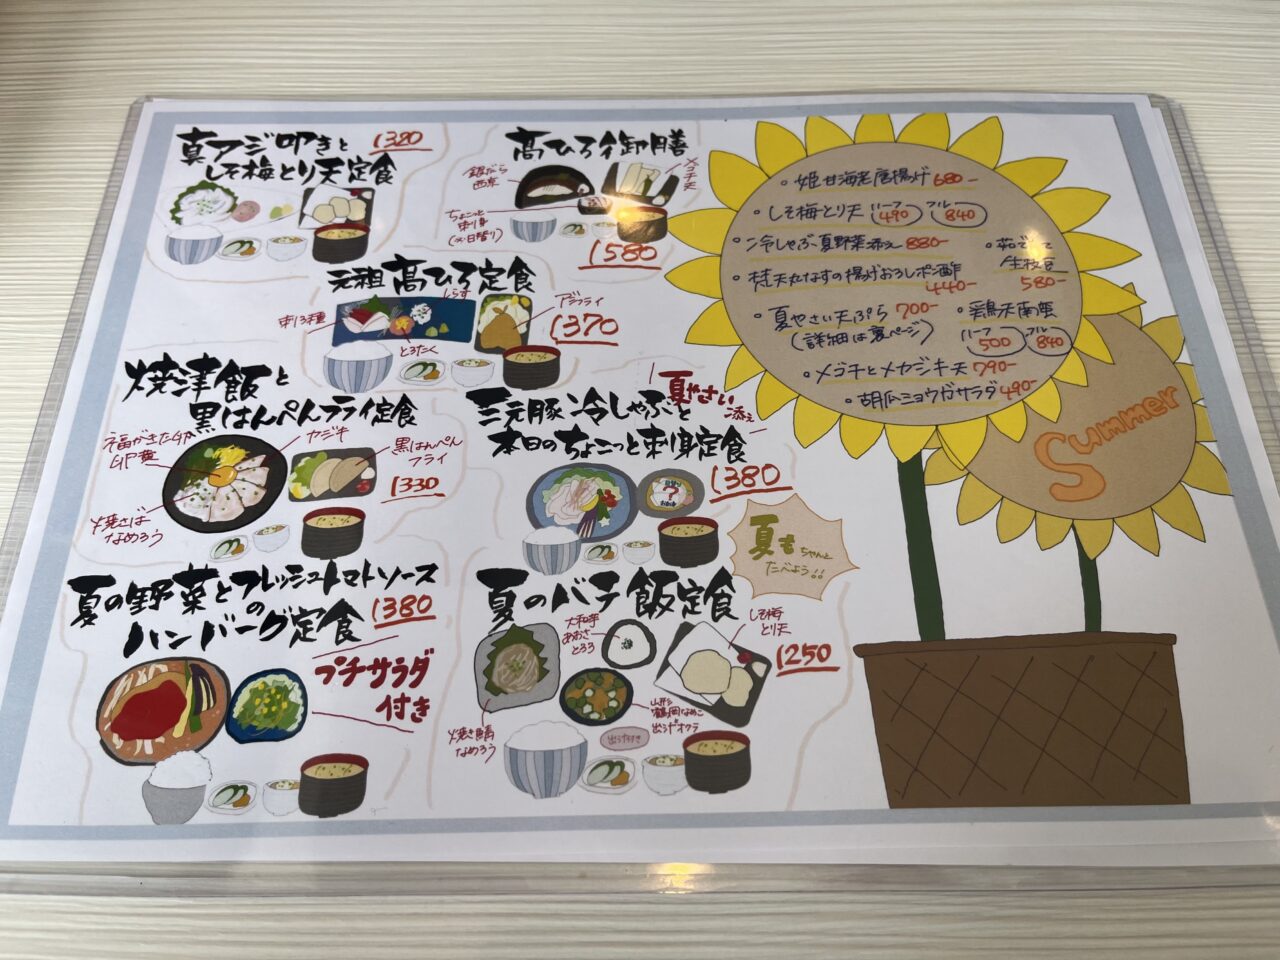 真アジ叩きと
しそ梅とり天定食
1320
髙ひろ御膳
銀だら
西京
メゴチ天
ちょこっと
刺身
(※日替り)
1580
元祖髙ひろ定食
しらす
アジフライ
刺3種
とろたく
1370
焼津飯と
黒はんぺんフライ定食
卵黄
カジキ
黒はんぺん
フライ
焼さば
なめろう
1330
三元豚冷しゃぶと
夏やさい
添え
本日のちょこっと刺身定食
1380
?
夏も
ちゃんと
たべよう!!
夏の野菜とフレッシュトマトソース
の
ハンバーグ定食
1380
プチサラダ
付き
夏のバテ飯定食
大和芋
あおさ
とろろ
しそ梅
とり天
1250
焼き鯖
なめろう
山形
鶴岡なめこ
出汁オクラ
出汁付き
・姫甘海老唐揚げ 680-
・しそ梅とり天 ハーフ 490- フル 840-
・冷しゃぶ夏野菜添え 880-
・茹でたて
生枝豆
580-
・梵天丸なすの揚げおろしポン酢
440-
・夏やさい天ぷら 700-
(詳細は裏ページ)
・鶏天南蛮
ハーフ 500 フル 840
・メゴチとメカジキ天 790-
・胡瓜ニョウガサラダ 490-
Summer